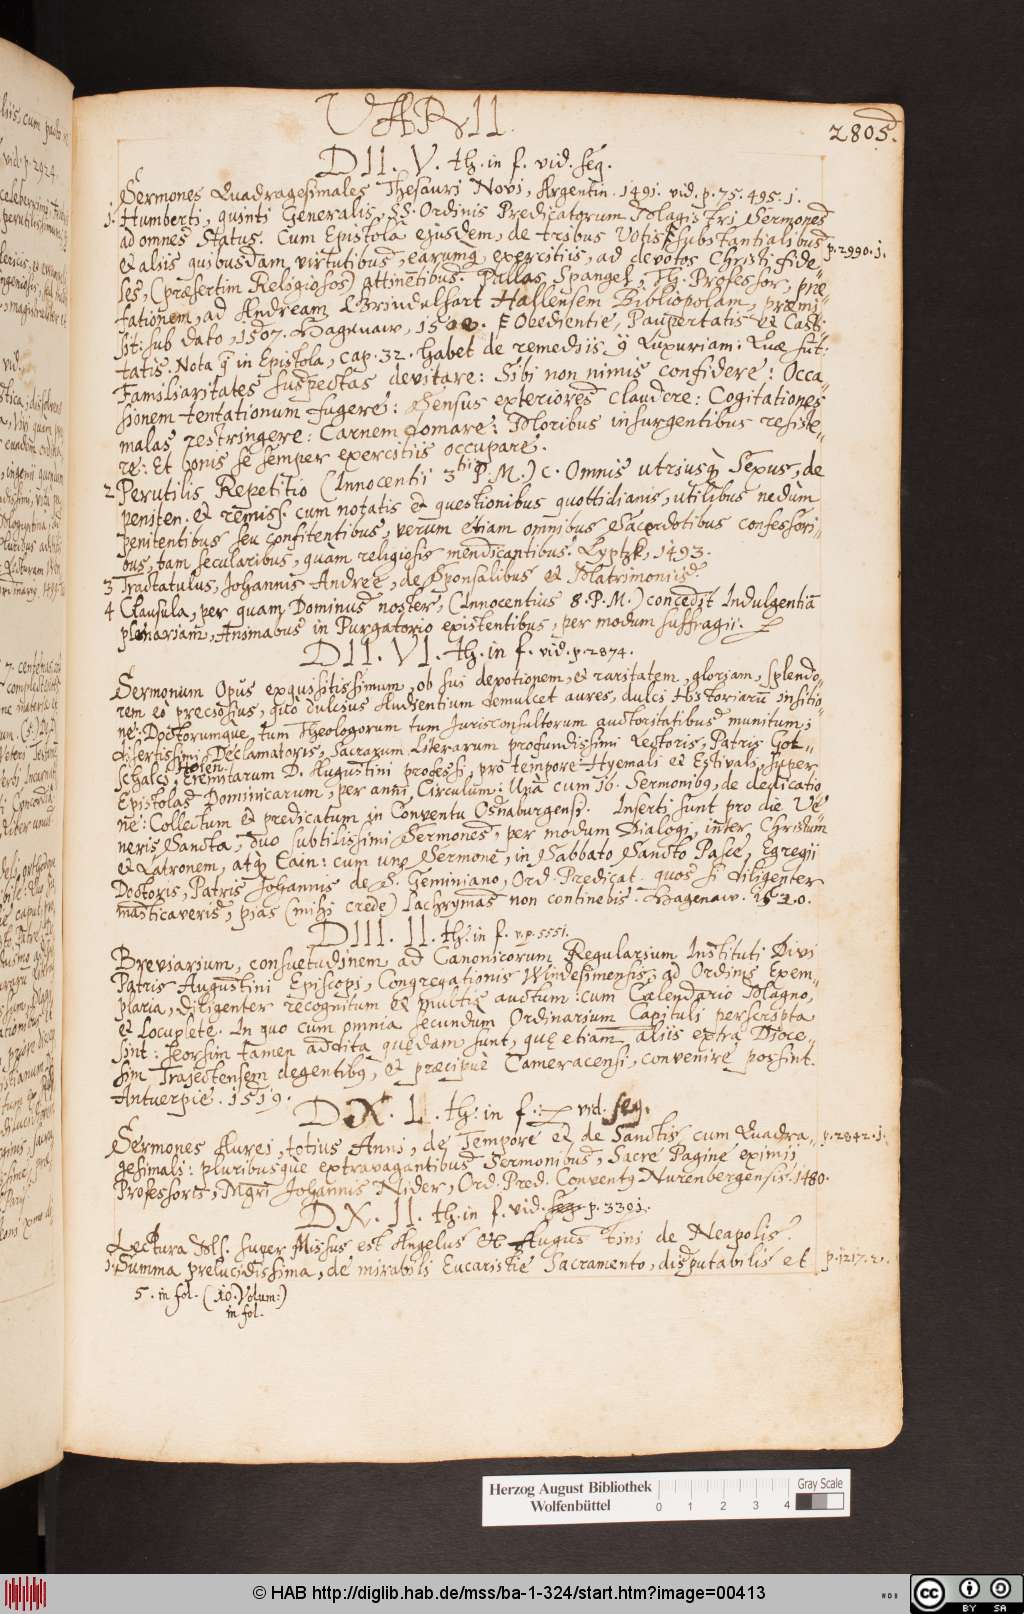 VARII.
2805.
DII. V. th. in f. vid. seq.
Sermones Quadragesimales Thesauri Novi, Argentin. 1491. vid. p. 75. 495. j.
1. Humberti, quinti Generalis, SS. Ordinis Predicatorum Magistri Sermones
ad omnes Status. Cum Epistola ejusdem, de tribus Votis F substantialibus
p. 2990. j.
et aliis quibusdam virtutibus, earumq exercitiis, ad devotos Christi fide-
les, (præsertim Religiosos) attinentibus. Pallas, Spangel, Th: Professor, præ-
fationem, ad Andream Grindelhart Hallensem Bibliopolam, præmi-
sit: sub dato, 1507. Hagenaw, 1508. F Obedientie, Paupertatis et Casti-
tatis. Nota q in Epistola, cap. 32. habet de remediis q Luxuriam. Quæ sut:
Familiaritates suspectas devitare: Sibi non nimis confidere: Occa-
sionem tentationum fugere: Sensus exteriores claudere: Cogitationes
malas restringere: Carnem domare: Moribus insurgentibus resiste-
re: Et bonis se semper exercitiis occupare.
2 Perutilis Repetitio (Innocentii 3tii P. M.) c. Omnis utriusq Sexus, de
peniten. et remiss. cum notatis et questionibus quottidianis, utilibus nedum
penitentibus seu confitentibus, verum etiam omnibus Sacerdotibus confessori-
bus, tam secularibus, quam religiosis mendicantibus. Lyptzk, 1493.
3 Tractatulus, Johannis Andreë, de Sponsalibus et Matrimoniis.
4 Clausula, per quam Dominus noster, (Innocentius 8. P. M.) concedit Indulgentiā
plenariam, Animabus in Purgatorio existentibus, per modum suffragii.
DII. VI. th. in f. vid. p. 2874.
Sermonum Opus exquisitissimum, ob sui devotionem, et raritatem, gloriam, splendo-
rem eò preciosius, quò dulcius Audientium demulcet aures, dulci Historiarū insitio-
ne: Doctorumque tum Theologorum tum Jurisconsultorum auctoritatibus munitum;
disertissimi Declamatoris, Sacrarum Literarum profundissimi Lectoris, Patris Got-
schalci Holen, Eremitarum D. Augustini professi, pro tempore Hyemali et Estivali, super
Epistolas Dominicarum, per anni Circulum: Unà cum 16. Sermonibq, de dedicatio-
ne: Collectum et predicatum in Conventu Osnaburgensi. Inserti sunt pro die Ve-
neris Sancta, duo subtilissimi Sermones, per modum Dialogi, inter Christum
et Latronem, atq Cain: cum uno Sermone, in Sabbato Sancto Pasce, Egregii
Doctoris, Patris Johannis de S. Geminiano, Ord. Predicat. quos si diligenter
masticaveris, pias (mihi crede) lachrymas non continebis. Hagenaw. 1520.
DIII. II. th. in f. v. p. 5551.
Breviarium, consuetudinem ad Canonicorum Regularium Instituti Divi
Patris Augustini Episcopi, Congregationis Windesimensis; ad Ordinis Exem-
plaria, diligenter recognitum et multis auctum: cum Calendario Magno,
et Locuplete. In quo cum omnia secundum Ordinarium Capituli perscripta
sint: seorsim tamen addita quędam sunt, quę etiam aliis extra Dioce-
sim Trajectensem degentibq, et precipuè Cameracensi, convenire possint.
Antverpie. 1519.
DX. L. th: in f. vid. seq.
Sermones Aurei, totius Anni, de Tempore et de Sanctis cum Quadra-
p. 2842. j.
gesimali: pluribusque extravagantibus Sermonibus, Sacre Pagine eximii
Professoris, Mgri Johannis Nider, Ord. Pred. Conventq Nurenbergensis. 1480.
DX. II. th. in f. vid. seq. p. 3301.
Lectura Ms. super Missus est Angelus etc Augustini de Neapolis.
1. Summa prelucidissima, de mirabili Eucaristie Sacramento, disputabilis et
p. 1217. 2.
5. in fol. (10. Volum:)
in fol.
Herzog August Bibliothek
Wolfenbüttel
0 1 2 3 4
Gray Scale
© HAB http://diglib.hab.de/mss/ba-1-324/start.htm?image=00413
cc BY SA